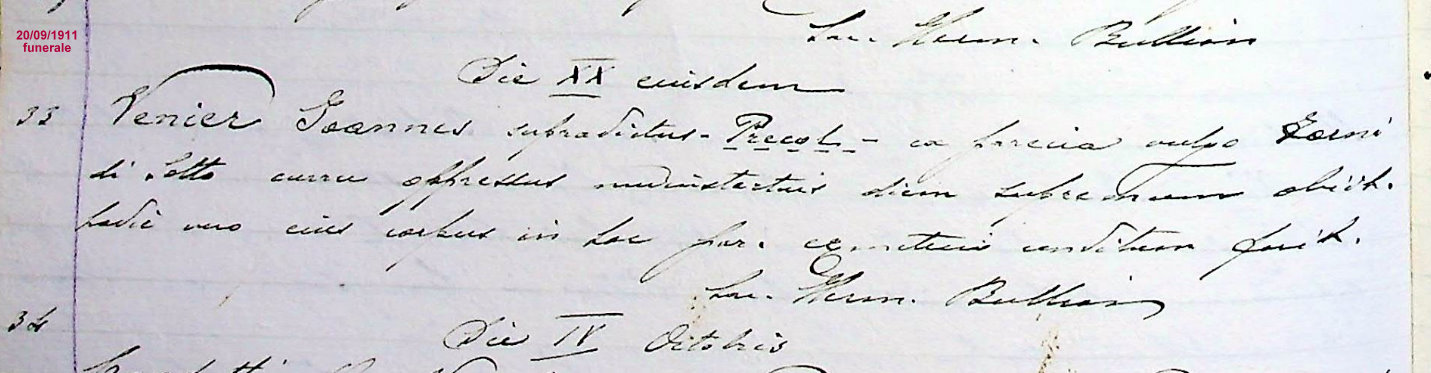 20/09/1911
funerale
Sac. Herm. Bullian
Die XX eiusdem
33 Venier Joannes supradictus - Precol - ex parecia vulgo Forni
di Sotto curru oppressus nudiustertius diem supremum obiit.
hodie vero eius corpus in hoc par. cemeterio conditum fuit.
Sac. Herm. Bullian
34
Die IV Octobris